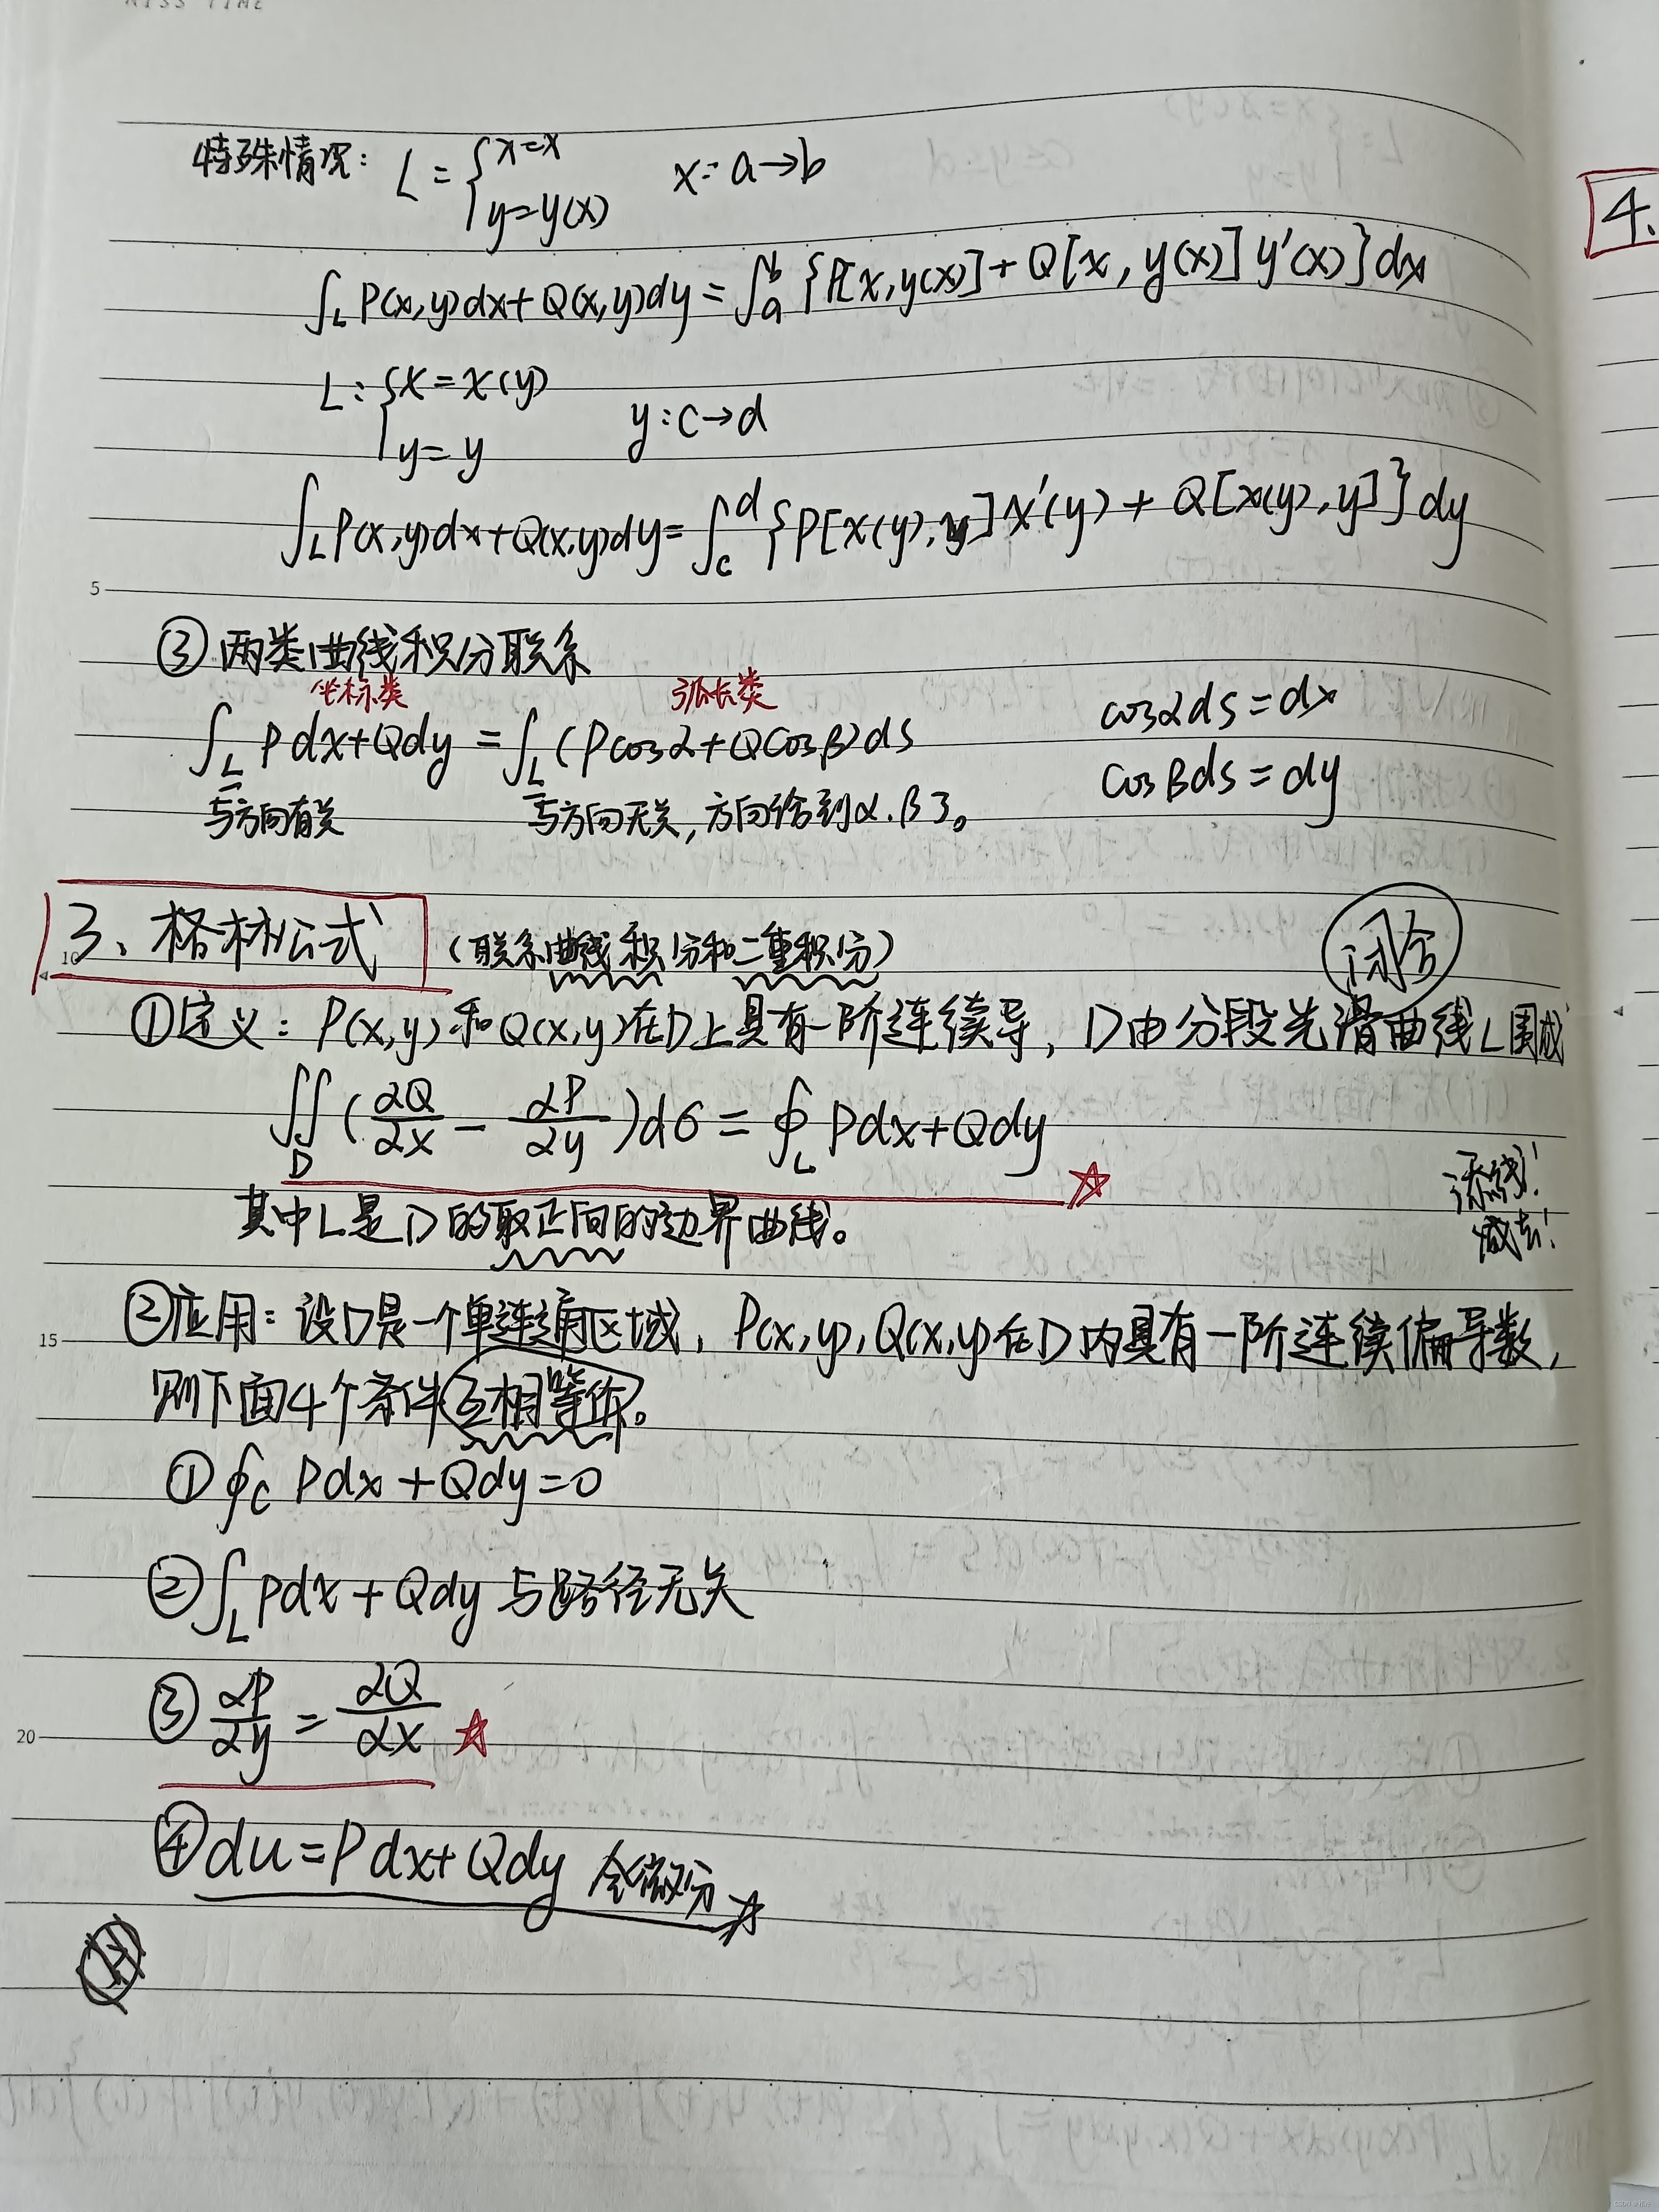 KISS TIME
特殊情况: L = { x=x x: a→b
y=y(x)
∫_L P(x,y)dx+Q(x,y)dy = ∫_a^b {P[x,y(x)]+Q[x,y(x)]y'(x)}dx
L: { x=x(y)
y=y y:c→d
∫_L P(x,y)dx+Q(x,y)dy = ∫_c^d {P[x(y),y]x'(y)+Q[x(y),y]}dy
5
③ 两类曲线积分联系
坐标类 弧长类
∫_L Pdx+Qdy = ∫_L (Pcosα+Qcosβ)ds
cosαds=dx
cosβds=dy
与方向有关 与方向无关,方向给到α.β了。
3、格林公式 (联系曲线积分和二重积分)
闭合
10
①定义: P(x,y)和Q(x,y)在D上具有一阶连续导, D由分段光滑曲线L围成
∬_D (∂Q/∂x - ∂P/∂y)dσ = ∮_L Pdx+Qdy ☆
添线!
减去!
其中L是D的取正向的边界曲线。
②应用: 设D是一个单连通区域, P(x,y), Q(x,y)在D内具有一阶连续偏导数,
15
则下面4个条件互相等价。
① ∮_C Pdx+Qdy=0
② ∫_L Pdx+Qdy 与路径无关
③ ∂P/∂y = ∂Q/∂x ☆
20
④ du=Pdx+Qdy 全微分 ☆
4.